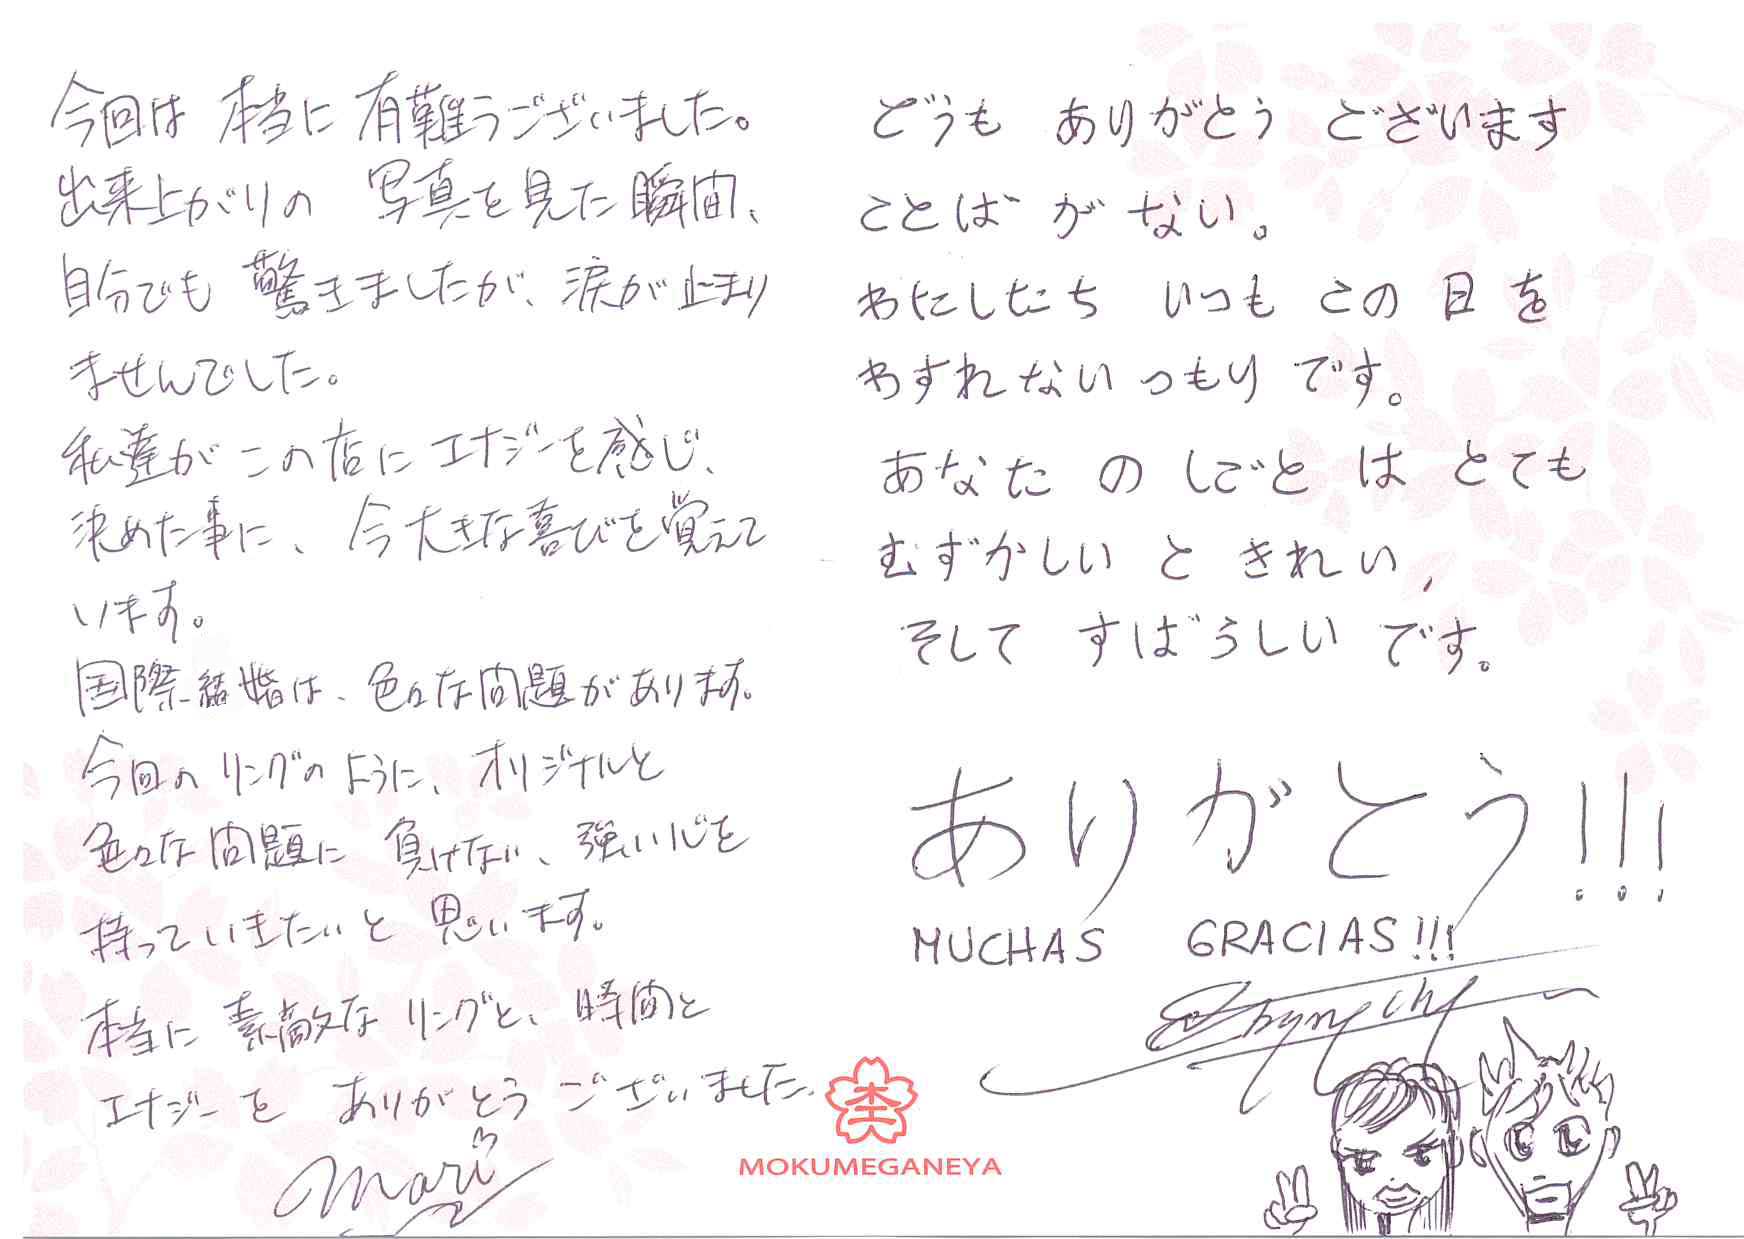 今回は 本当に 有難うございました。
出来上がりの 写真を見た瞬間、
自分でも 驚きましたが、涙が止まり
ませんでした。
私達が この店に エナジーを感じ、
決めた事に、今大きな喜びを覚えて
います。
国際結婚は、色々な問題があります。
今回の リングの ように、オリジナルと
色々な 問題に 負けない、強い心を
持って いきたいと 思います。
本当に 素敵な リングと、時間と
エナジーを ありがとう ございました.
Mari
どうも ありがとう ございます
ことば が ない。
わたしたち いつも この 日 を
わすれない つもり です。
あなた の しごと は とても
むずかしい と きれい,
そして すばらしい です。
ありがとう!!!
MUCHAS GRACIAS!!!
MOKUMEGANEYA